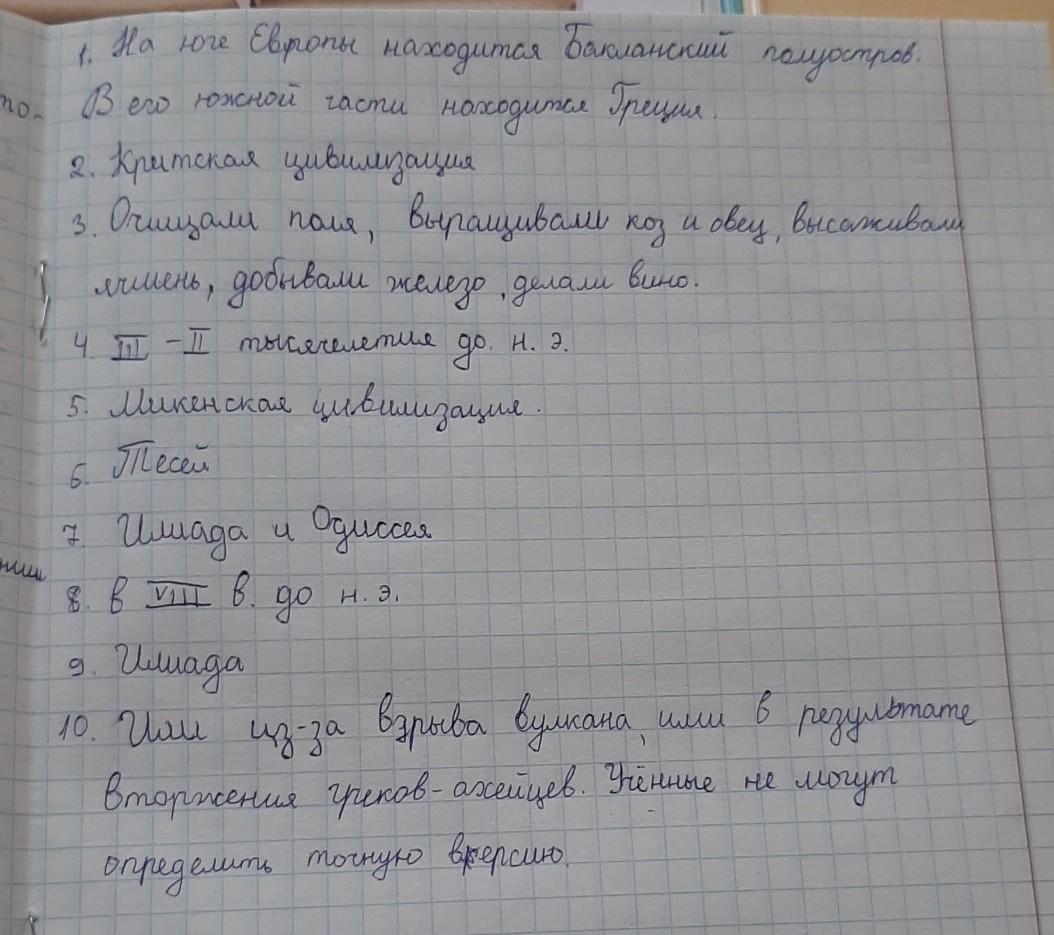 1. На юге Европы находится Бакланский полуостров.
то.
В его южной части находится Греция.
2. Критская цивилизация
3. Очищали поля, выращивали коз и овец, высаживали
ячмень, добывали железо, делали вино.
4 III - II тысячелетия до. н. э.
5. Микенская цивилизация.
6. Тесей
7. Илиада и Одиссея
8. В VIII в. до н. э.
9. Илиада
10. Или из-за взрыва вулкана, или в результате
вторжения греков-ахейцев. Учённые не могут
определить точную версию.